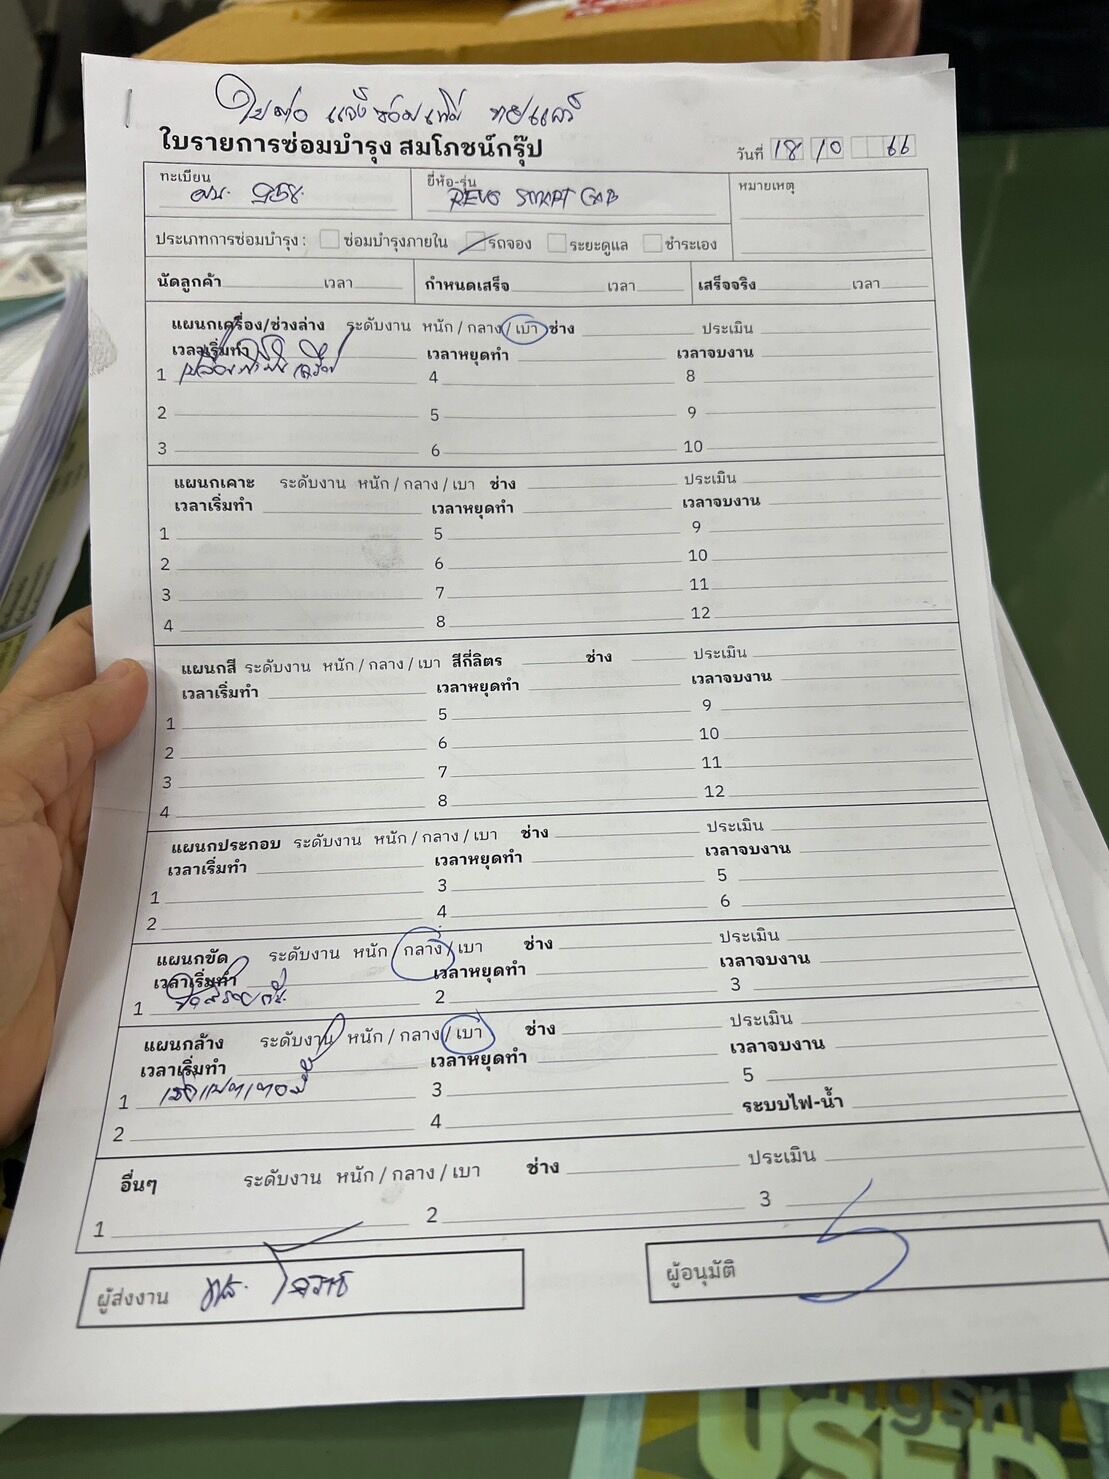 ใบรายการซ่อมบำรุง สมโภชน์กรุ๊ป
วันที่ 18 10 66
ทะเบียน ยี่ห้อ-รุ่น REVO SMART CAB หมายเหตุ
ประเภทการซ่อมบำรุง : ซ่อมบำรุงภายใน รถจอง ระยะดูแล ชำระเอง
นัดลูกค้า เวลา กำหนดเสร็จ เวลา เสร็จจริง เวลา
แผนกเครื่อง/ช่วงล่าง ระดับงาน หนัก / กลาง / เบา ช่าง ประเมิน
เวลาเริ่มทำ เวลาหยุดทำ เวลาจบงาน
1 4 8
2 5 9
3 6 10
แผนกเคาะ ระดับงาน หนัก / กลาง / เบา ช่าง ประเมิน
เวลาเริ่มทำ เวลาหยุดทำ เวลาจบงาน
1 5 9
2 6 10
3 7 11
4 8 12
แผนกสี ระดับงาน หนัก / กลาง / เบา สีกี่ลิตร ช่าง ประเมิน
เวลาเริ่มทำ เวลาหยุดทำ เวลาจบงาน
1 5 9
2 6 10
3 7 11
4 8 12
แผนกประกอบ ระดับงาน หนัก / กลาง / เบา ช่าง ประเมิน
เวลาเริ่มทำ เวลาหยุดทำ เวลาจบงาน
1 3 5
2 4 6
แผนกขัด ระดับงาน หนัก / กลาง / เบา ช่าง ประเมิน
เวลาเริ่มทำ เวลาหยุดทำ เวลาจบงาน
1 2 3
แผนกล้าง ระดับงาน หนัก / กลาง / เบา ช่าง ประเมิน
เวลาเริ่มทำ เวลาหยุดทำ เวลาจบงาน
1 3 5
2 4 ระบบไฟ-น้ำ
อื่นๆ ระดับงาน หนัก / กลาง / เบา ช่าง ประเมิน
1 2 3
ผู้ส่งงาน ผู้อนุมัติ
USED